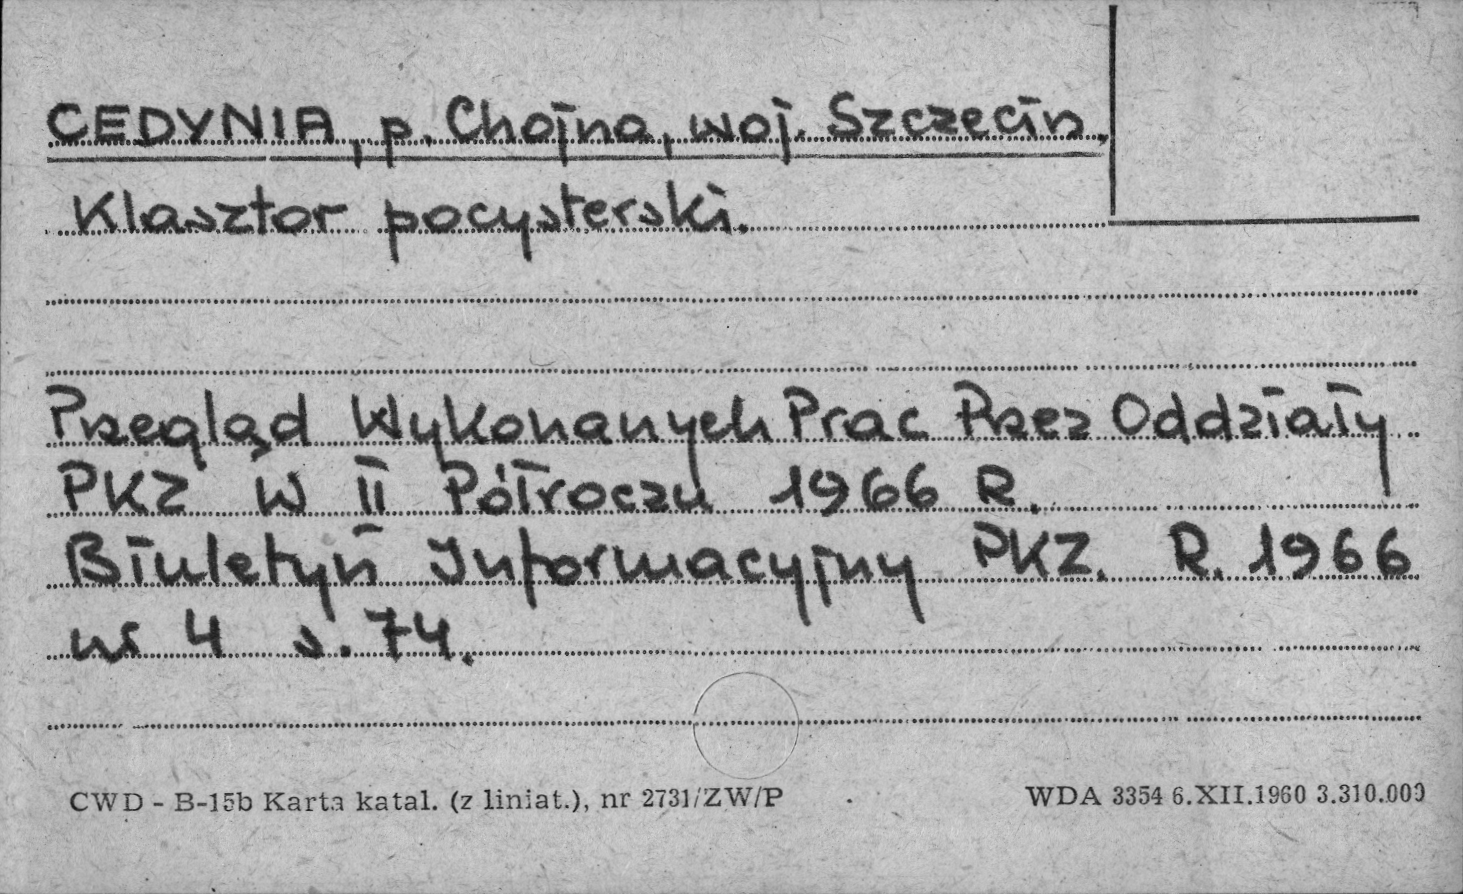 CEDYNIA, p. Chojna, woj. Szczecin,
Klasztor pocysterski.
Przegląd Wykonanych Prac Przez Oddziały
PKZ W II Półroczu 1966 R.
Biuletyn Informacyjny PKZ. R. 1966
nr 4 s. 74.
CWD - B-15b Karta katal. (z liniat.), nr 2731/ZW/P
WDA 3354 6.XII.1960 3.310.000